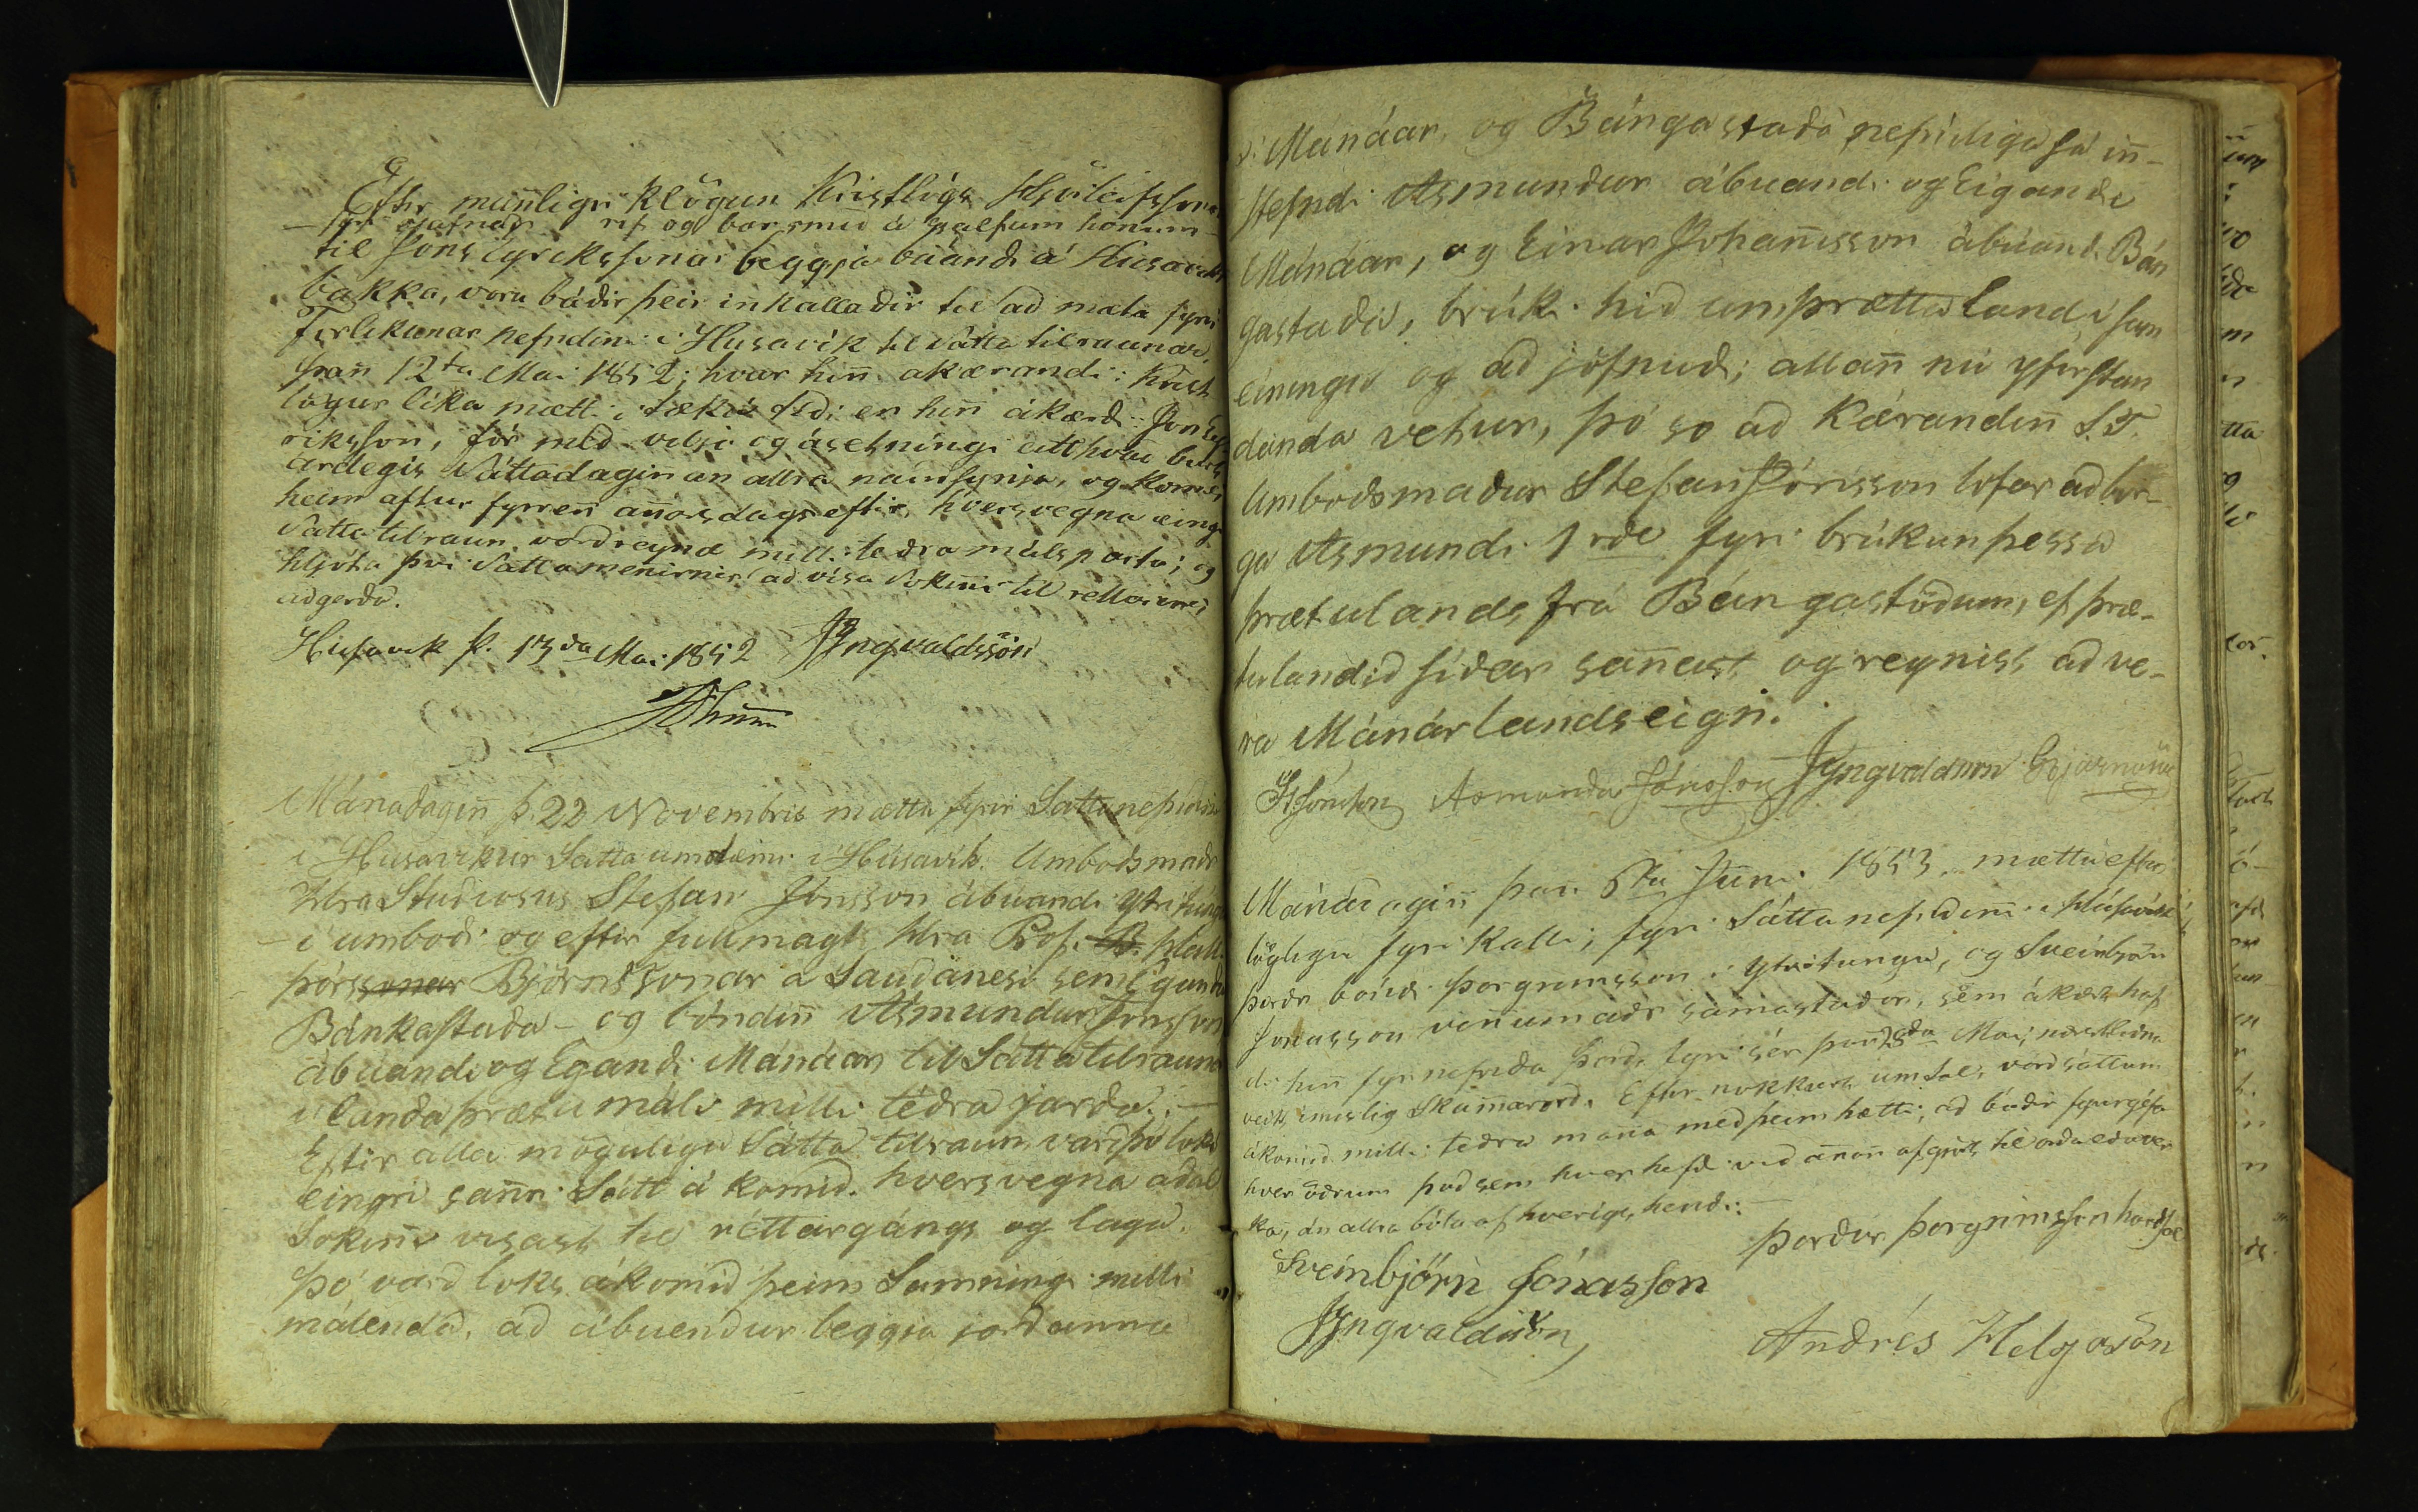 Eftir mun̄ligri klögun Kristlögs Hjörleifssonar
– fyri ójafnað, rif og barsmíð á sjálfum honum –
til Jóns Eyrekssonar beggja búandi á Húsavíkr
bakka, voru báðir þeir inkallaðir til að mæta fyri
Forlikunar nefndin̄i í Húsavík til Sátta tilraunar,
þan̄ 12ta Mai 1852; hvar hin̄ akærandi: Krist
lögur líka mætti í tækin tíð; en hin̄ ákærði: Jón Ey
riksson, fór með vilja og ásetningi eitthvað burt
árdegis Sáttadagin̄ án allra nauðsynja, og kom ei
heim aftur fyrren̄ an̄ars dags eftir, hvers vegna eingin
Sátta tilraun varð reynd milli téðra málsparta; og
hljóta því Sáttamen̄irnir að vísa Sökin̄i til réttarins
aðgerða.
Húsavík þ. 13da Mai 1852 JYngvaldssön

Mánadagin̄ þ. 22 Novembris mættu fyrir Sáttanefndin̄i
í Húsavíkur Sátta umdæmi í Húsavík. Umboðsmaðr
Hra Studiosus Stefán Jónsson ábúandi Ytritúngu
– í umboði og eftir fullmagt Hra Prof. B. Hall
þórssonar Björnssonar á Sauðanesi sem Eganda
Bánkastaða – og bóndin̄ Asmundur Jónsson
ábúandi og Egandi Mánáar, til Sátta tilraunar
í landaþrætu máli milli téðra jarða. –
Eftir alla mögulega Sátta tilraun, varð þó loks
eingin san̄ri Sátt á komið. hvers vegna aðal
Sökin̄i vísast til réttargángs og laga.
þó varð loks ákomið þeim Samningi milli
málenda, að ábúendur beggja jarðanna
Mánáar, og Bángastaða nefnilega sá in̄–
stefndi Asmundur ábúandi og Eigandi
Mánáar, og Einar Johan̄sson ábúandi Bán
gastaða, brúki hið umþrætta land í sam
einingu og að jöfnuði; allan̄ nú yfirstan
danda vetur, þó so að Kærandin̄ S.T.
Umboðsmaður Stefán Jónsson lofar að bor–
ga Asmundi 1 rdl fyri brúkun þessa
þrætulands frá Bángastöðum, ef þræ–
tulandið síðar san̄ast og reynist að ve–
ra Mánárlandseign.
StJónsson Asmundur Jónsson JYngvaldsson

Mánadagin̄ þan̄ 6ta Júní 1853. mættu eftir
löglegu fyrikalli; fyri Sáttanefndin̄i í Húsavík
þorðr bóndi þorgrímsson í Ytritungu, og Sveinbjörn
Jónasson vin̄umaðr samastaðar, sem ákærðr haf
di hin̄ fyrnefnda þord, fyri sér þan̄ 28da Mai, næstliðna
veitt ímislig skam̄arorð. Eftir nokkurt úmtal, varð sáttum
ákomið milli téðra man̄a með þeim hætti, að báðir fyrirgéfa
hver öðrum það sem hver hefði við an̄an̄ afgjört til orða eða ver
ka, án allra bóta af hverigs hendi: –
þorður þorgrímsson
Sveinbjörn Jónasson
JYngvaldssön, Andrés Helgasön